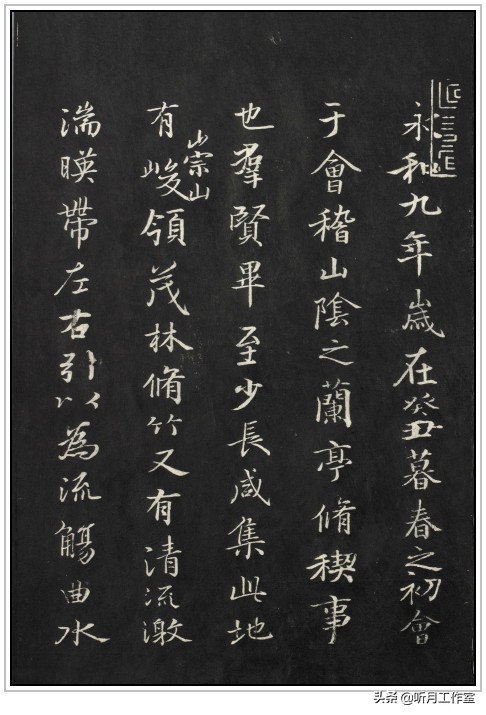 永和九年歲在癸丑暮春之初會
于會稽山陰之蘭亭脩稧事
也羣賢畢至少長咸集此地
有崇山峻領茂林脩竹又有清流激
湍暎帶左右引以為流觴曲水
头条@听月工作室